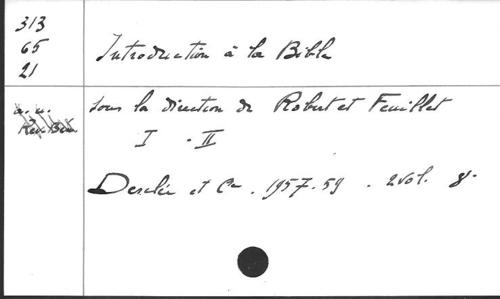 313
65
21
Introduction à la Bible
a. u.
sous la direction de Robert et Feuillet
I - II
Desclée et Cie. 1957-59. 2 vol. 8°